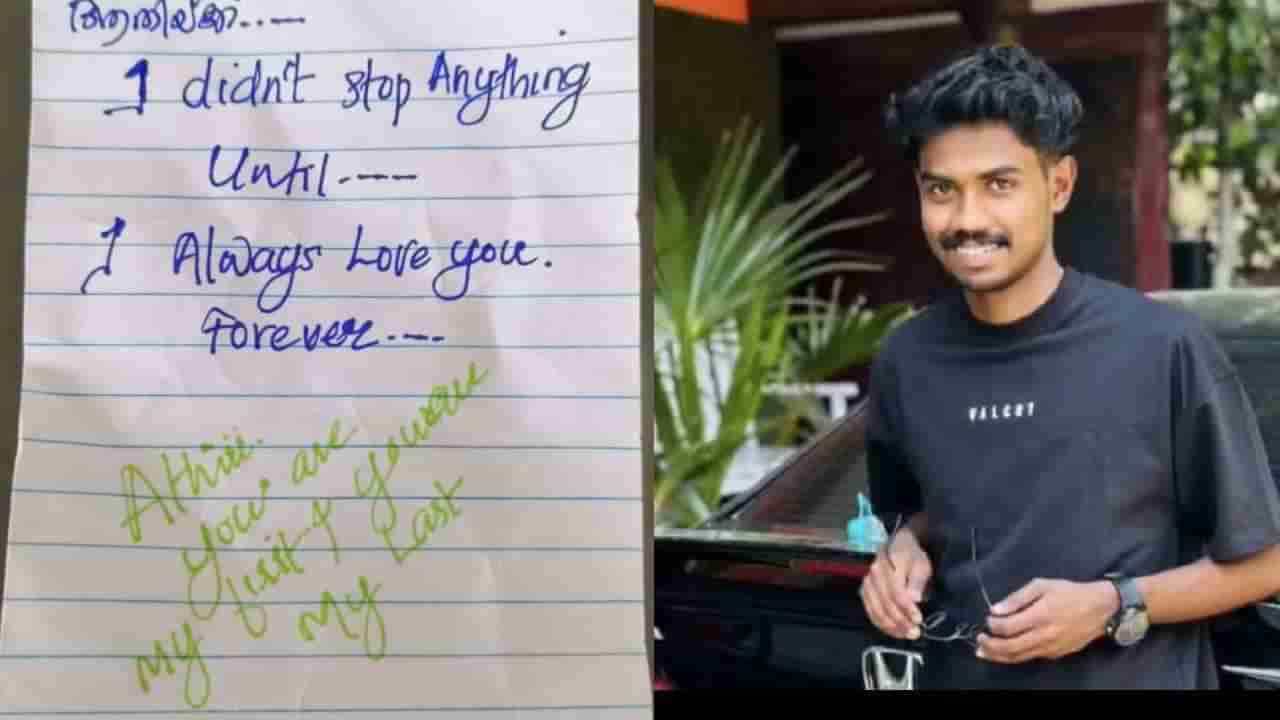 ആതിയ്ക്ക്.....
I didn't stop Anything
Until ----
I Always Love you.
Forever ----
Athiii.
you are
my fisit & youare
my Last
VALCUT